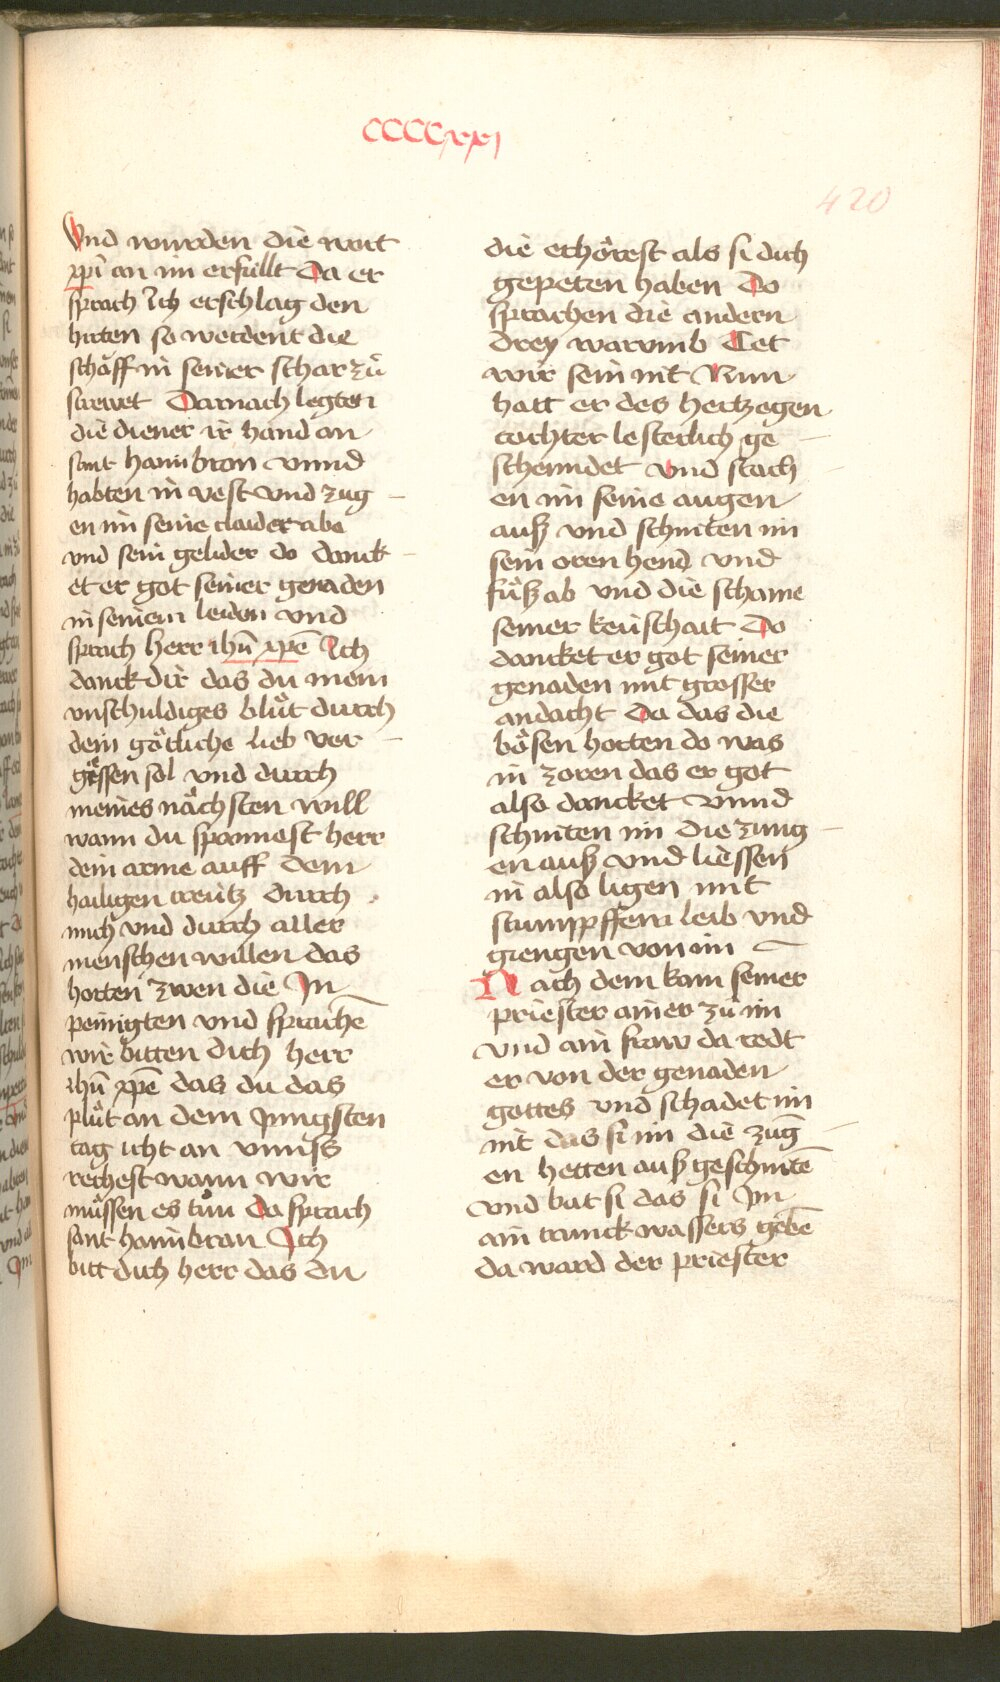 CCCCxxj
420
Vnd wurden die wort
xpi an im erfullt Da er
sprach Ich erschlag den
hirten so werdent die
schäff in seiner schar zů
strewet Darnach legten
die diener ir hand an
sant hainbran vnnd
habten in vest vnd zug
en im seine claider abe
vnd sein gelider do danck
et er got seiner genaden
in seinem leiden vnd
sprach herr ihū xpē Ich
danck dir das du mein
vnschuldiges blůt durch
dein götliche lieb ver
giessen sol vnd durch
meines nächsten will
wann du spannest herr
dein arme auff dem
hailigen creutz durch
mich vnd durch aller
menschen willen das
horten zwen die In
peinigten vnd sprache
wir bitten dich herr
ihū xpē das du das
plůt an dem Jungsten
tag icht an vnnss
rechest wann wir
müssen es tůn Da sprach
sant hainbran Ich
bitt dich herr das du
die erhörest als si dich
gepeten haben Do
sprachen die andern
drey warumb Tet
wir sein nit Nun
hatt er des hertzogen
tochter lesterlich ge
schenndet vnd stach
en im seine augen
auß vnd schniten im
sein oren hend vnd
füß ab vnd die schame
seiner keuschait Do
dancket er got seiner
genaden mit grosser
andacht Da das die
bösen horten do was
in zoren das er got
also dancket vnnd
schniten im die zung
en auß vnd liessen
in also ligen mit
stumpffem leib vnd
giengen von im
Nach dem kam seiner
priester ainer zu im
vnd ain fraw da redt
er von der genaden
gottes vnd schadet im
nit das si im die zūg
en hetten auß geschnitē
vnd bat si das si Im
ain trunck wassers gebē
da ward der priester